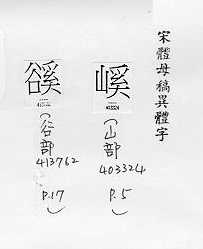 宋體母稿異體字
嵠
(山部
403324
P.5)
谿
(谷部
413762
P.17)